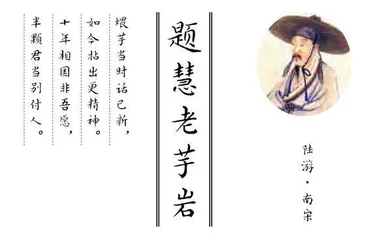 陆游·南宋
题慧老芋岩
煨芋当时话已新，
如今拈出更精神。
十年相国非吾愿，
半颗君当别付人。